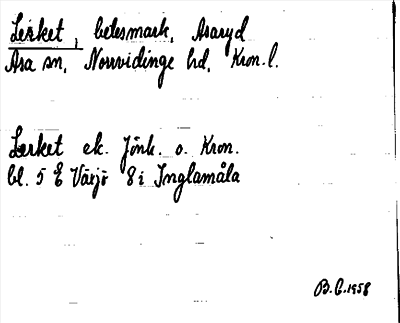 Lerket, betesmark, Asaryd
Asa sn, Norrvidinge hd, Kron.l.
Lerket ek. Jönk. o. Kron.
bl. 5 E Växjö 8 i Inglamåla
B.C. 1958